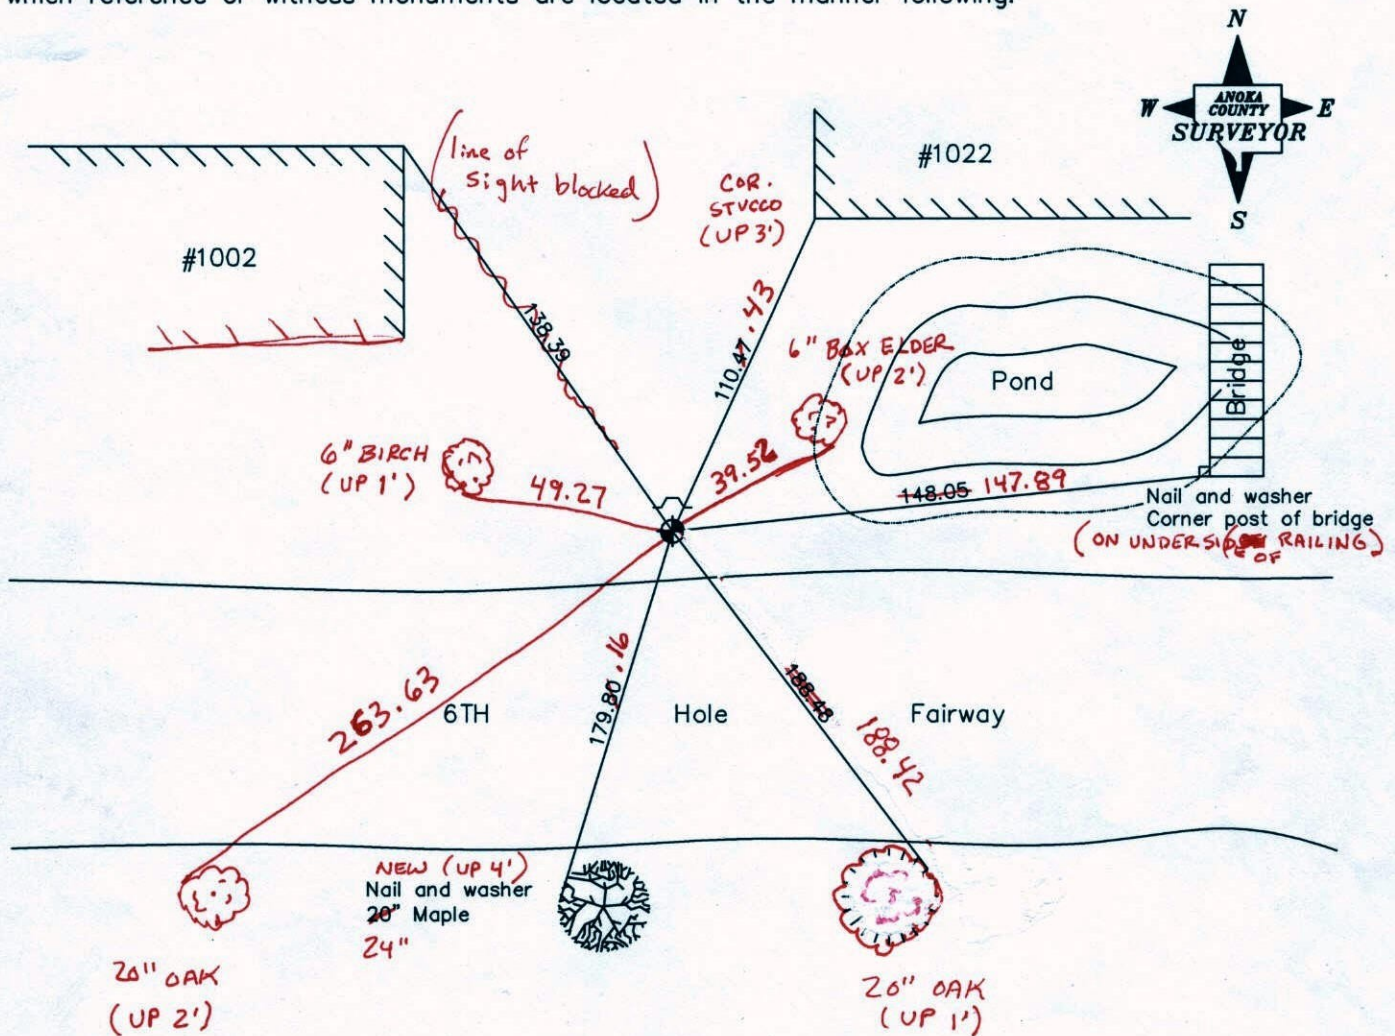 which reference or witness monuments are located in the manner following:
N
W ANOKA COUNTY E
SURVEYOR
S
(line of
sight blocked)
#1022
COR.
STUCCO
(UP 3')
#1002
138.39
110.47 .43
6" BOX ELDER
(UP 2')
Pond
Bridge
6" BIRCH
(UP 1')
49.27
39.52
148.05 147.89
Nail and washer
Corner post of bridge
(ON UNDERSIDE OF RAILING)
263.63
179.80 .16
188.48
188.42
6TH Hole Fairway
NEW (UP 4')
Nail and washer
20" Maple
24"
20" OAK
(UP 2')
20" OAK
(UP 1')